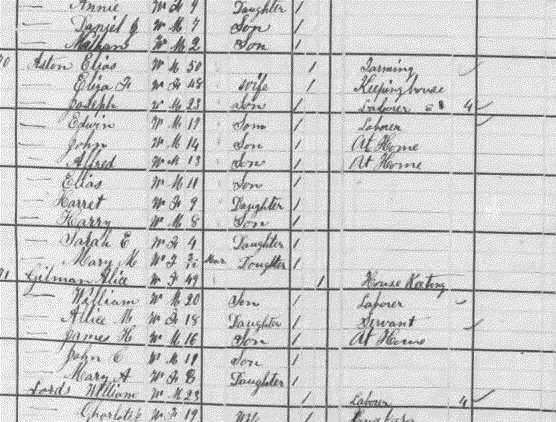 — Annie W F 9 Daughter 1
— Daniel J W M 7 Son 1
— Nathan W M 2 Son 1
70 Aston Elias W M 50 1 Farming
— Eliza F W F 48 wife 1 Keeping house
— Joseph W M 23 Son 1 Laborer 4
— Edwin W M 17 Son 1 Laborer
— John W M 14 Son 1 At Home
— Alfred W M 13 Son 1 At Home
— Elias W M 11 Son 1
— Harret W F 9 Daughter 1
— Harry W M 8 Son 1
— Sarah E W F 4 Daughter 1
— Mary M W F Mar Daughter 1
71 Gilman Alice W F 49 1 House Keeping
— William W M 20 Son 1 Laborer
— Allice M W F 18 Daughter 1 Servant
— James H W M 16 Son 1 At Home
— John E W M 11 Son 1
— Mary A W F 8 Daughter 1
Lords William W M 23 1 Laborer 4
— Charlotte W F 19 Wife 1